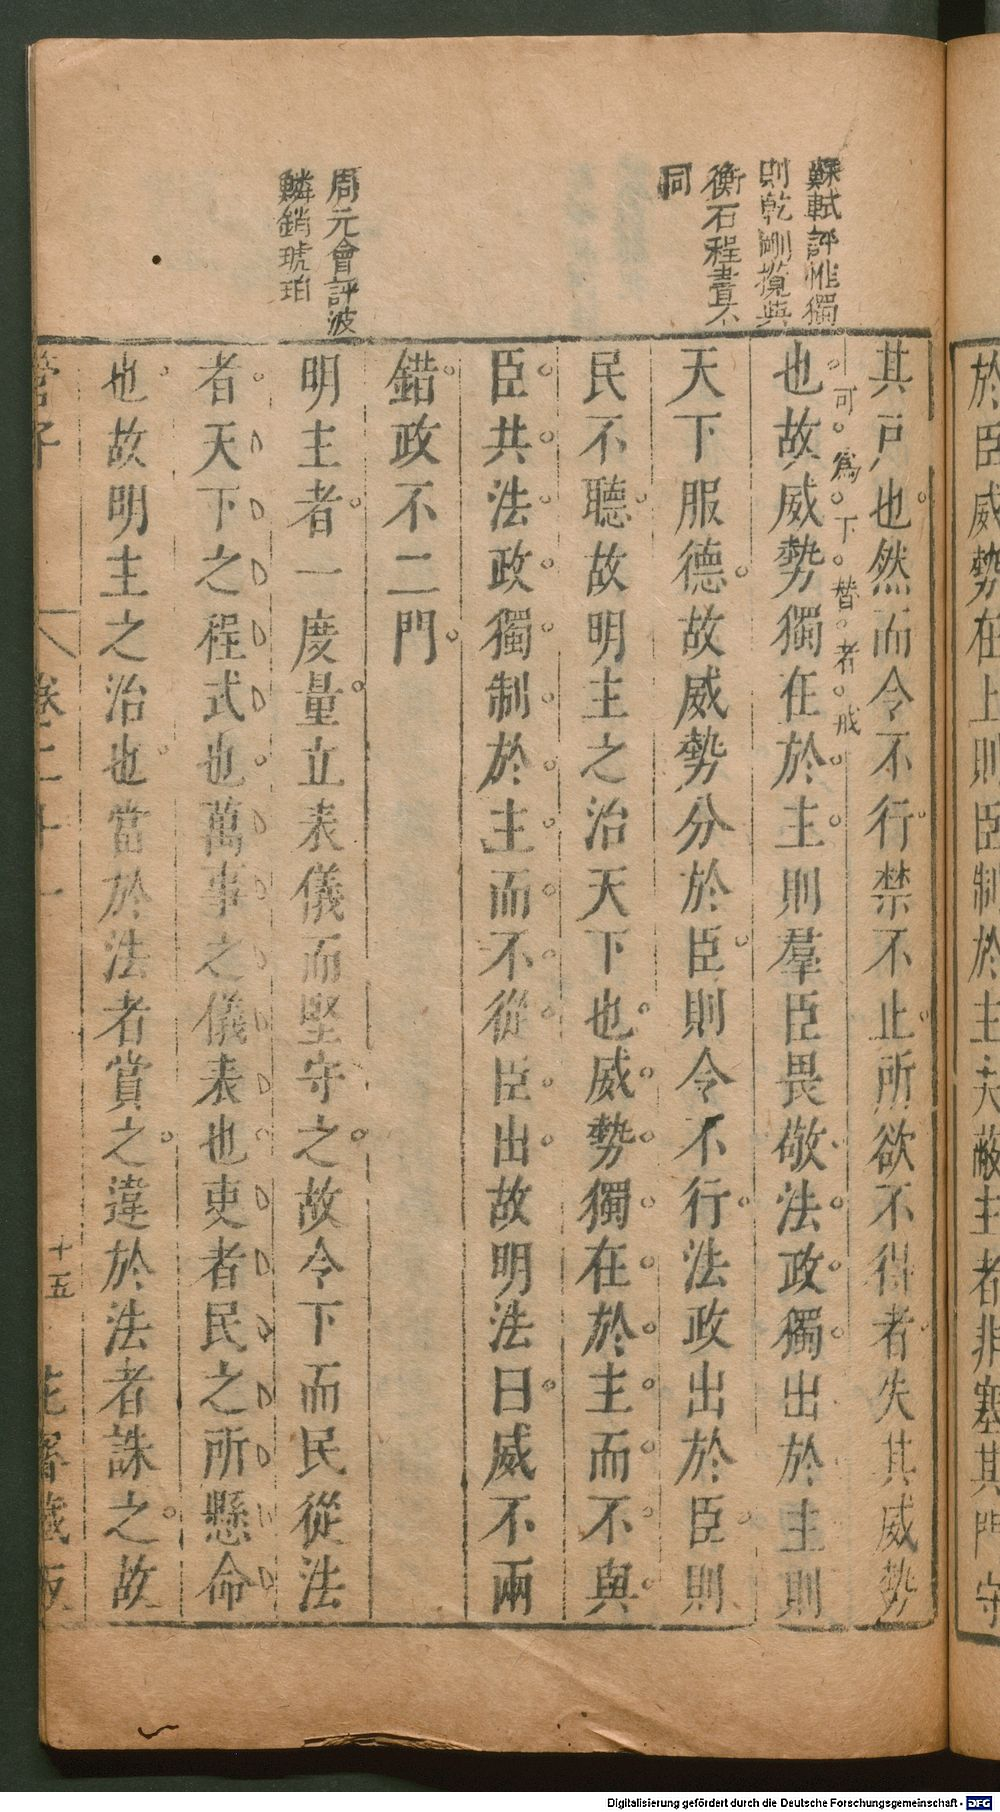 於臣威勢在上則臣制於主夫蔽主者非塞其門守
蘇軾評惟獨
則乾剛攬與
衡石程書不
同
其戸也然而令不行禁不止所欲不得者失其威勢
可為下替者戒
也故威勢獨在於主則羣臣畏敬法政獨出於主則
天下服德故威勢分於臣則令不行法政出於臣則
民不聽故明主之治天下也威勢獨在於主而不與
臣共法政獨制於主而不從臣出故明法曰威不兩
錯政不二門
周元會評波
鱗銷琥珀
明主者一度量立表儀而堅守之故令下而民從法
者天下之程式也萬事之儀表也吏者民之所懸命
也故明主之治也當於法者賞之違於法者誅之故
管子
卷二十一
十五
花齋藏版
Digitalisierung gefördert durch die Deutsche Forschungsgemeinschaft - DFG